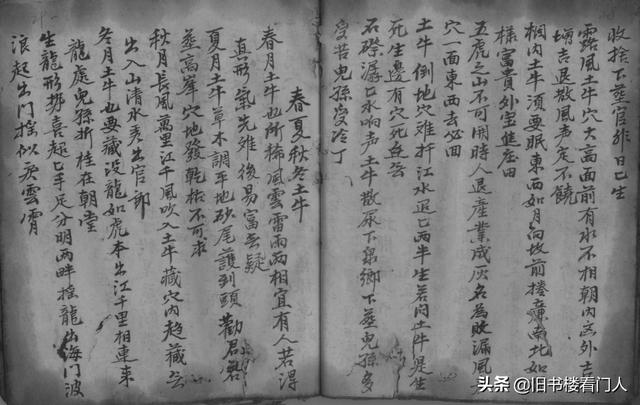 收捨下莝官非日已生
露風土牛穴大高面前有水不相朝内宮外
吉退散風声定不饒
相内土牛须要眠東西如月向坟前捲廉南北如
樣富貴外家進庄田
五虎之山不可用時人退産業成灰名為敗漏風
穴一面東西去必回
土牛倒地穴难扦江水退亡兩半生若问土牛是生
死生邊有穴死无
石磜瀑亡水响声土牛散尿下泉鄉下莝兒孫多
受苦兒孫受冷丁
春夏秋冬土牛
春月土牛也所稀風雲雷雨兩相宜有人若得
真形氣先难後易富无疑
夏月土牛草木調平地砂尾護到頭勸君若
莝高峯穴地發乾枯不可求
秋月長風萬里江千風吹入土牛藏穴内趋藏云
出入山清水秀出官郎
冬月土牛也要藏没龍如虎本出江千里相連来
龍處兒孫折桂在朝堂
生龍形挪喜起亡手足分明两畔摇龍出海門波
浪起出門摇似雲霄
头条 @旧书楼看门人